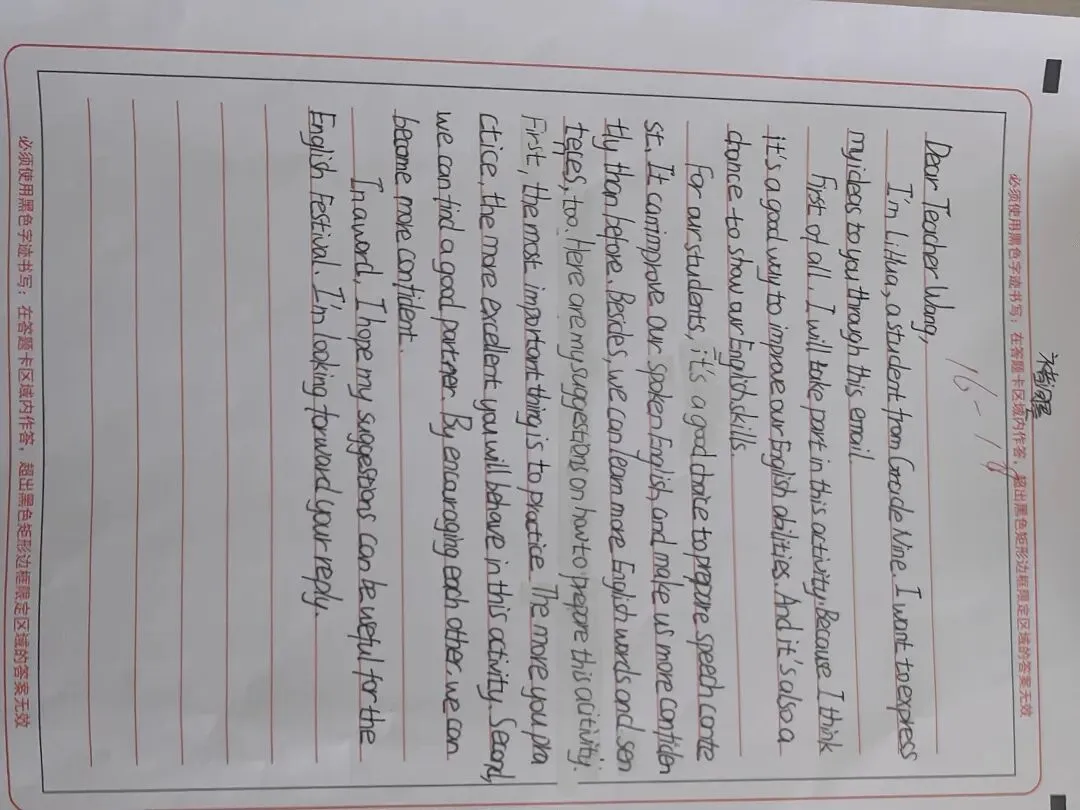 必须使用黑色字迹书写；在答题卡区域内作答，超出黑色矩形边框限定区域的答案无效
Dear Teacher Wang,
I'm Li Hua, a student from Grade Nine. I want to express
my ideas to you through this email.
First of all. I will take part in this activity. Because I think
it's a good way to improve our English abilities. And it's also a
chance to show our English skills.
For our students, it's a good choice to prepare speech conte
st. It can improve our spoken English, and make us more confiden
tly than before. Besides, we can learn more English words and sen
teces, too. Here are my suggestions on how to prepare this acitivity.
First, the most important thing is to practice. The more you pra
ctice, the more excellent you will behave in this activity. Second,
we can find a good partner. By encouraging each other, we can
become more confient.
In a word, I hope my suggestions can be useful for the
English Festival. I'm looking forward your reply.
必须使用黑色字迹书写；在答题卡区域内作答，超出黑色矩形边框限定区域的答案无效